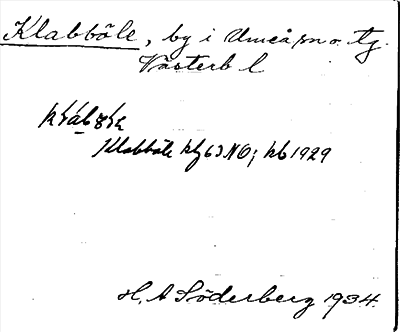 Klabböle, by i Umeå sn o. tg.
Västerb l
Klabböle kg 63 NO; hb 1929
H, A Söderberg 1934.